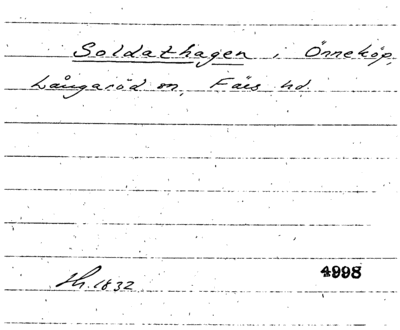 Soldathagen i Önneköp,
Långaröd sn, Färs hd.
4998
Lh. 1832